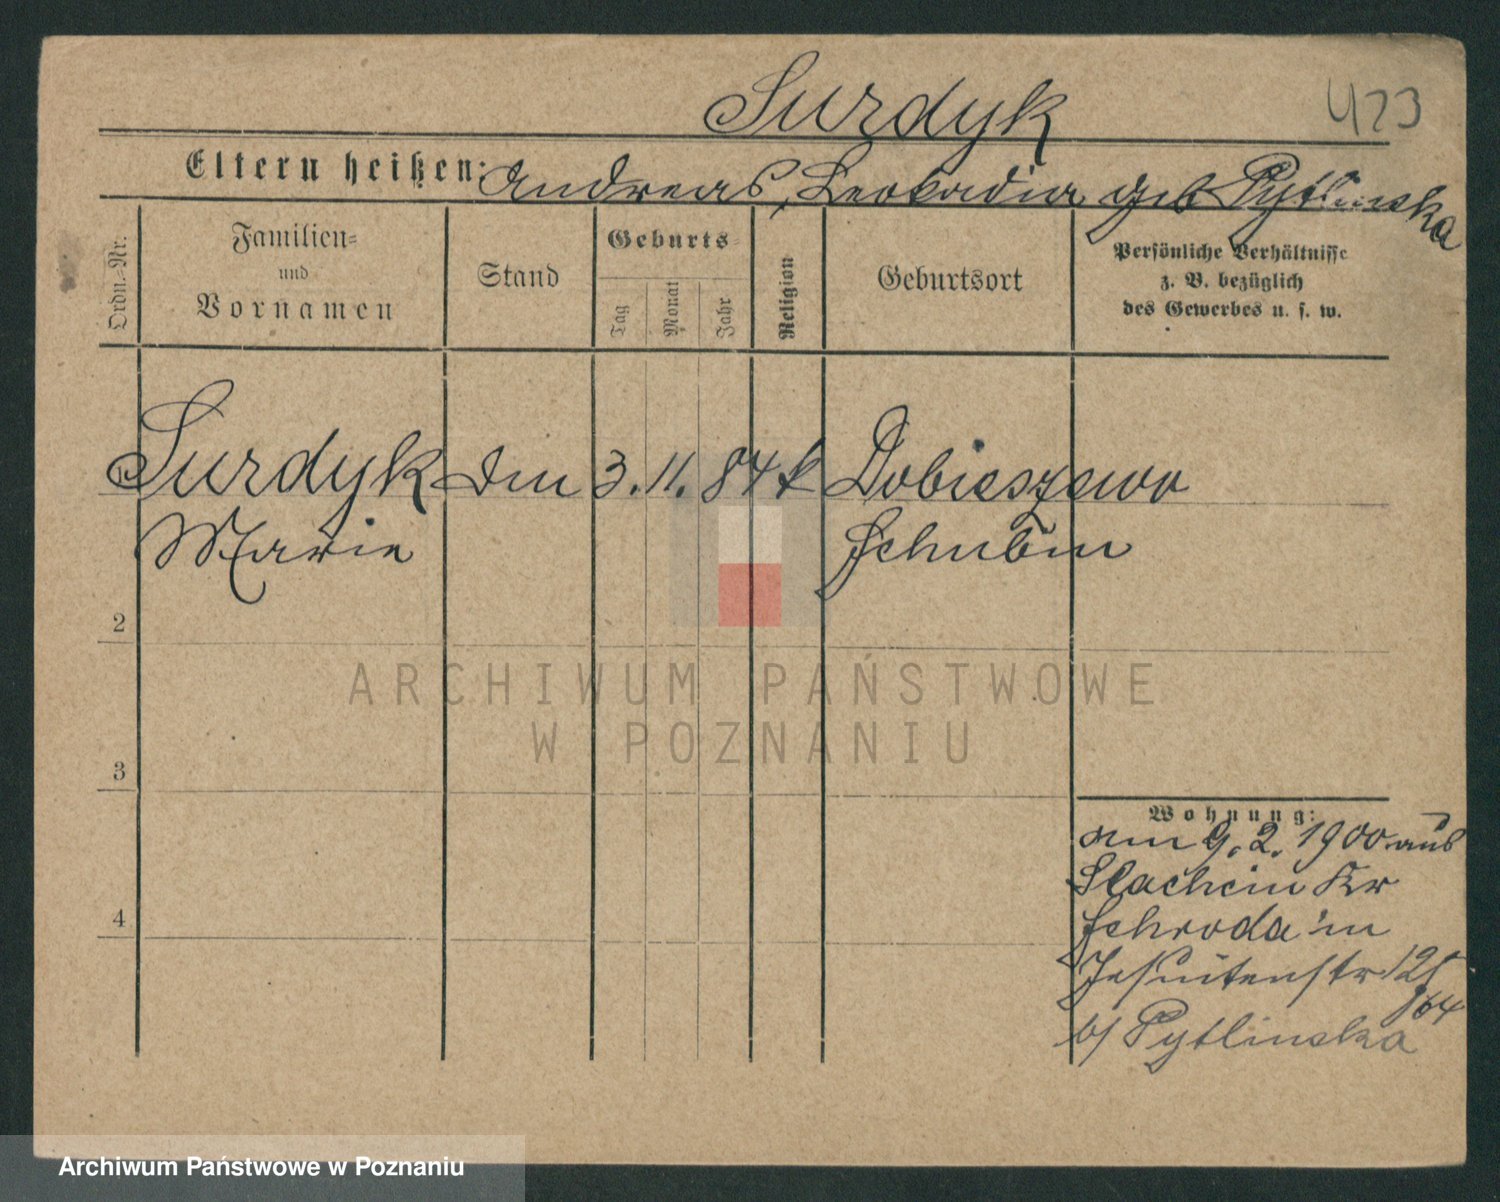 Surdyk
423
Eltern heißen: Andreas, Leokadia geb Pytlinska
Ordn.-Nr.
Familien-
und
Vornamen
Stand
Geburts-
Tag
Monat
Jahr
Religion
Geburtsort
Persönliche Verhältnisse
z. B. bezüglich
des Gewerbes u. s. w.
1 Surdyk 3. 11. 84 k Dobieszewo
Marie Schubin
2
3
4
Wohnung:
am 9. 2. 1900 aus
Slachcin Kr
Schroda in
Jesuitenstr 12
b/ Pytlinska
ARCHIWUM PAŃSTWOWE
W POZNANIU
Archiwum Państwowe w Poznaniu